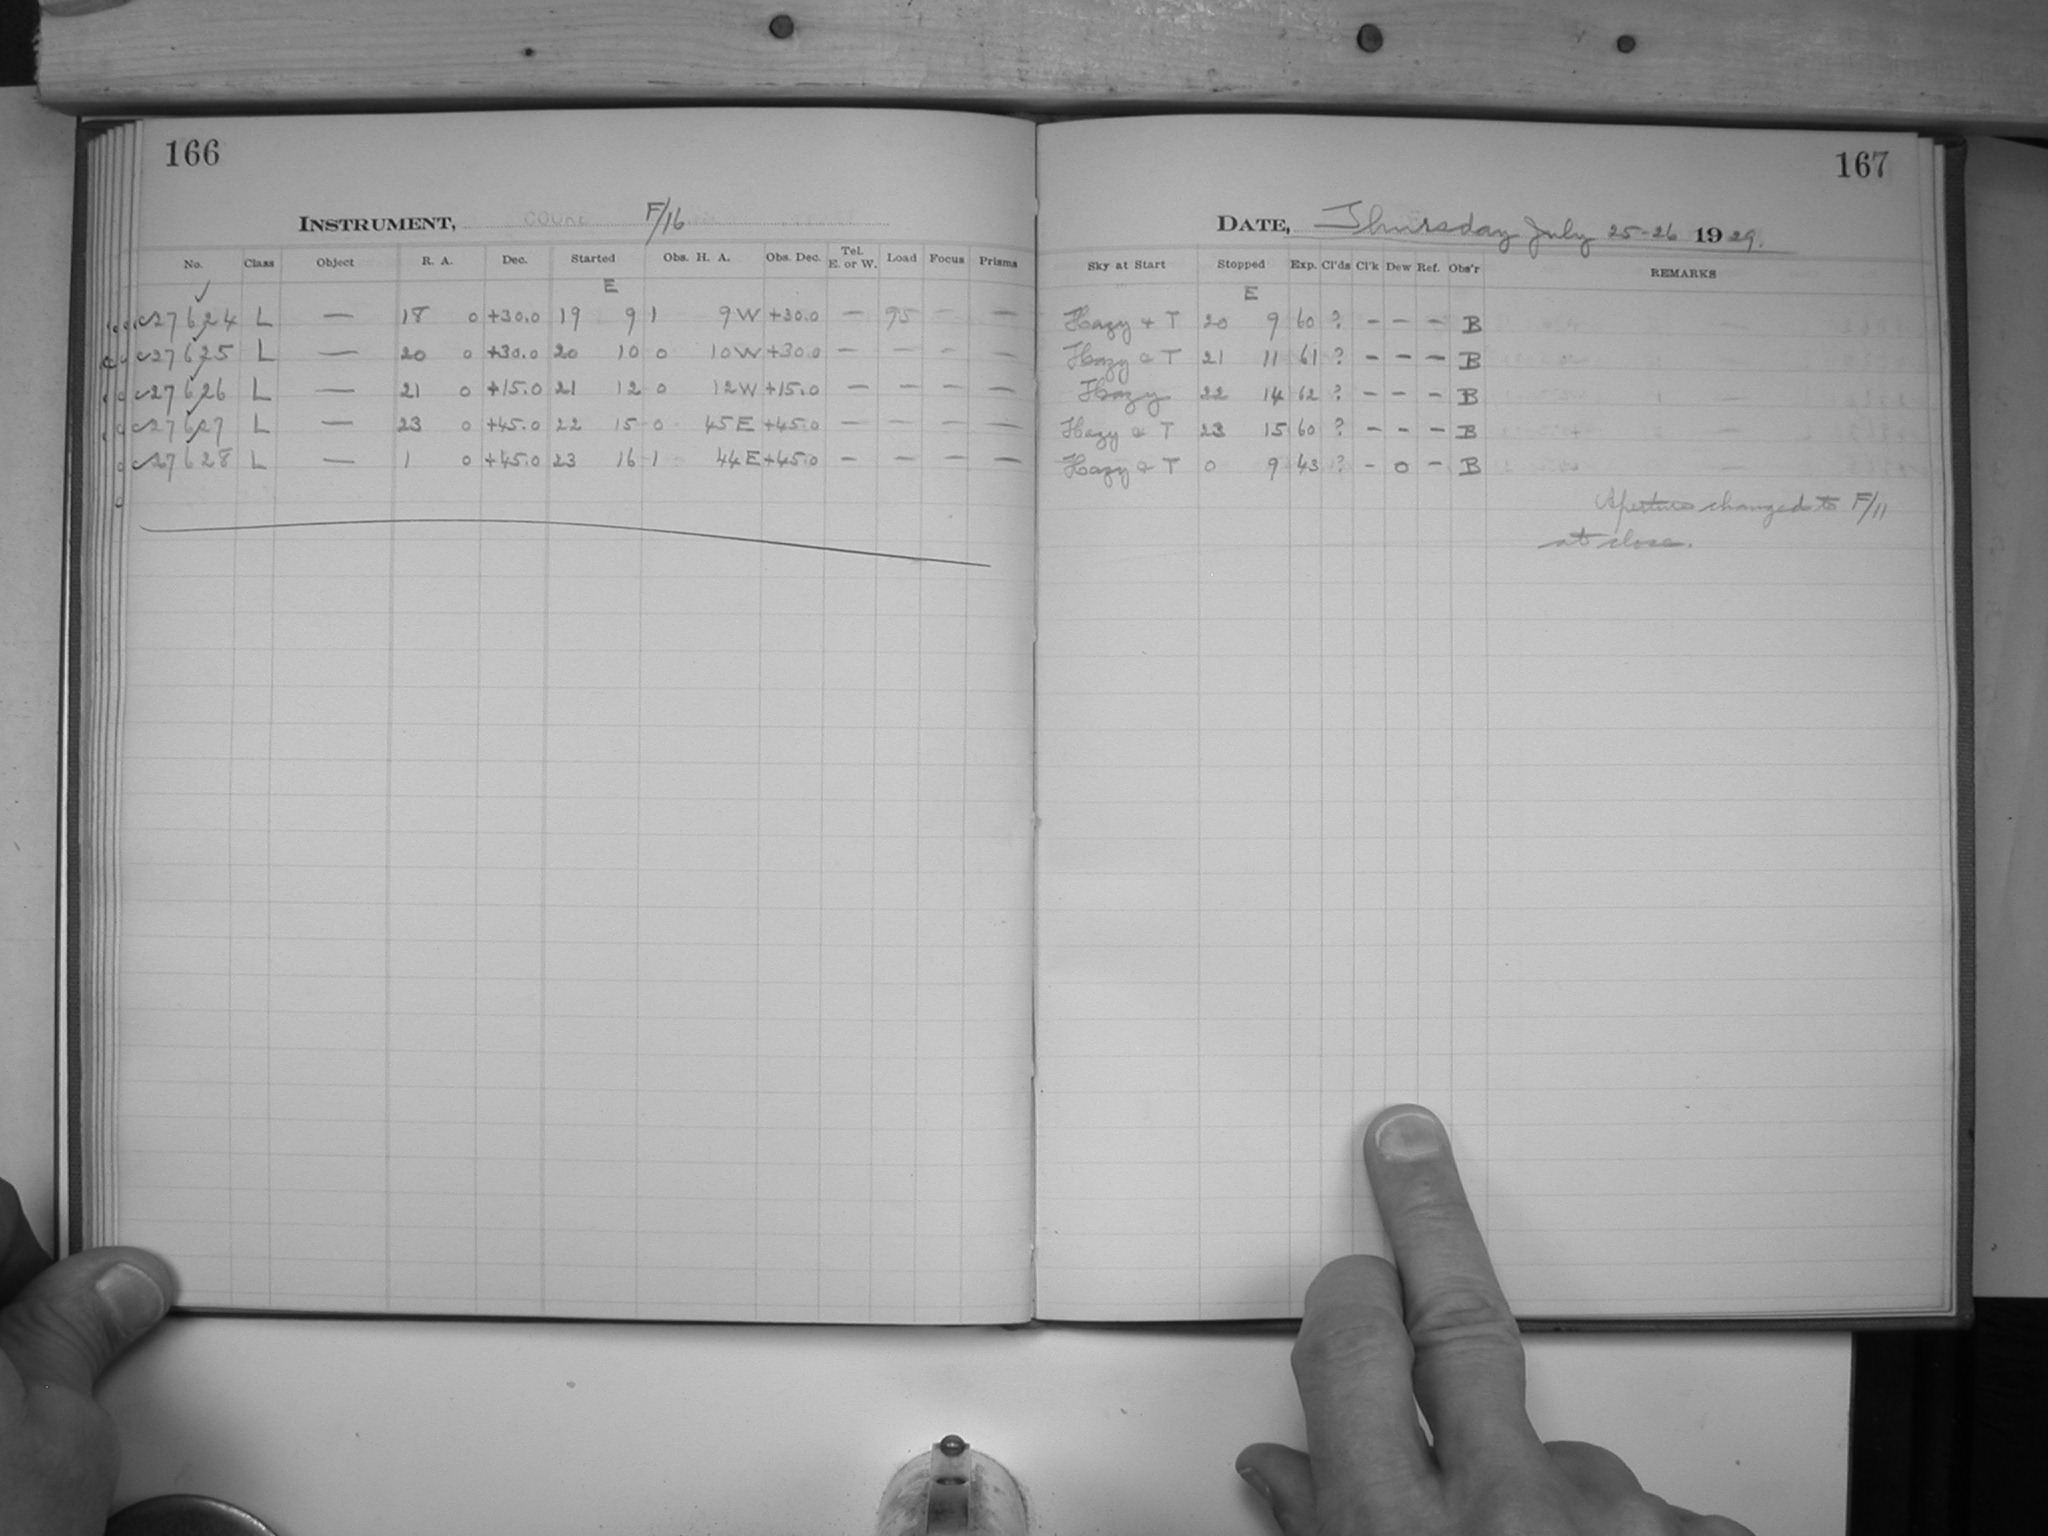 166
INSTRUMENT, F/16
No. Class Object R. A. Dec. Started Obs. H. A. Obs. Dec. Tel. E. or W. Load Focus Prisms
E
27624 L — 18 0 +30.0 19 9 1 9W +30.0 — 95 — —
27625 L — 20 0 +30.0 20 10 0 10W +30.0 — — - —
27626 L — 21 0 +15.0 21 12 0 12W +15.0 — — — —
27627 L — 23 0 +45.0 22 15 0 45E +45.0 — — — —
27628 L — 1 0 +45.0 23 16 1 44E +45.0 — — — —
167
DATE, Thursday July 25-26 1929.
Sky at Start Stopped Exp. Cl'ds Cl'k Dew Ref. Obs'r REMARKS
E
Hazy + T 20 9 60 ? - - - B
Hazy & T 21 11 61 ? - - - B
Hazy 22 14 62 ? - - - B
Hazy & T 23 15 60 ? - - - B
Hazy & T 0 9 43 ? - 0 - B
Aperture changed to F/11
at close.